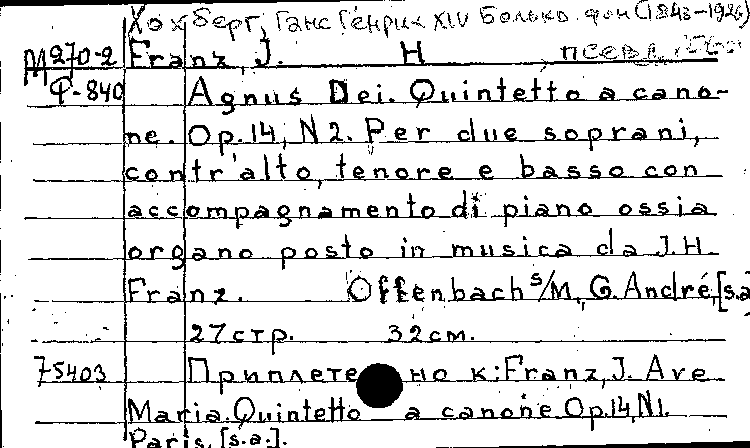 Хохберг, Ганс Генрих XIV Болько фон (1843-1926)
М270-2 Franz, J. H псевд.
Ф-840 Agnus Dei. Quintetto a cano-
ne. Op.14, N 2. Per due soprani,
contr'alto, tenore e basso con
accompagnamento di piano ossia
organo posto in musica da J.H.
Franz. Offenbach s/M, G. André, [s.a
27стр. 32см.
75403 Приплетено к: Franz, J. Ave
Maria. Quintetto a canone Op.14, N1.
Paris, [s.a.].